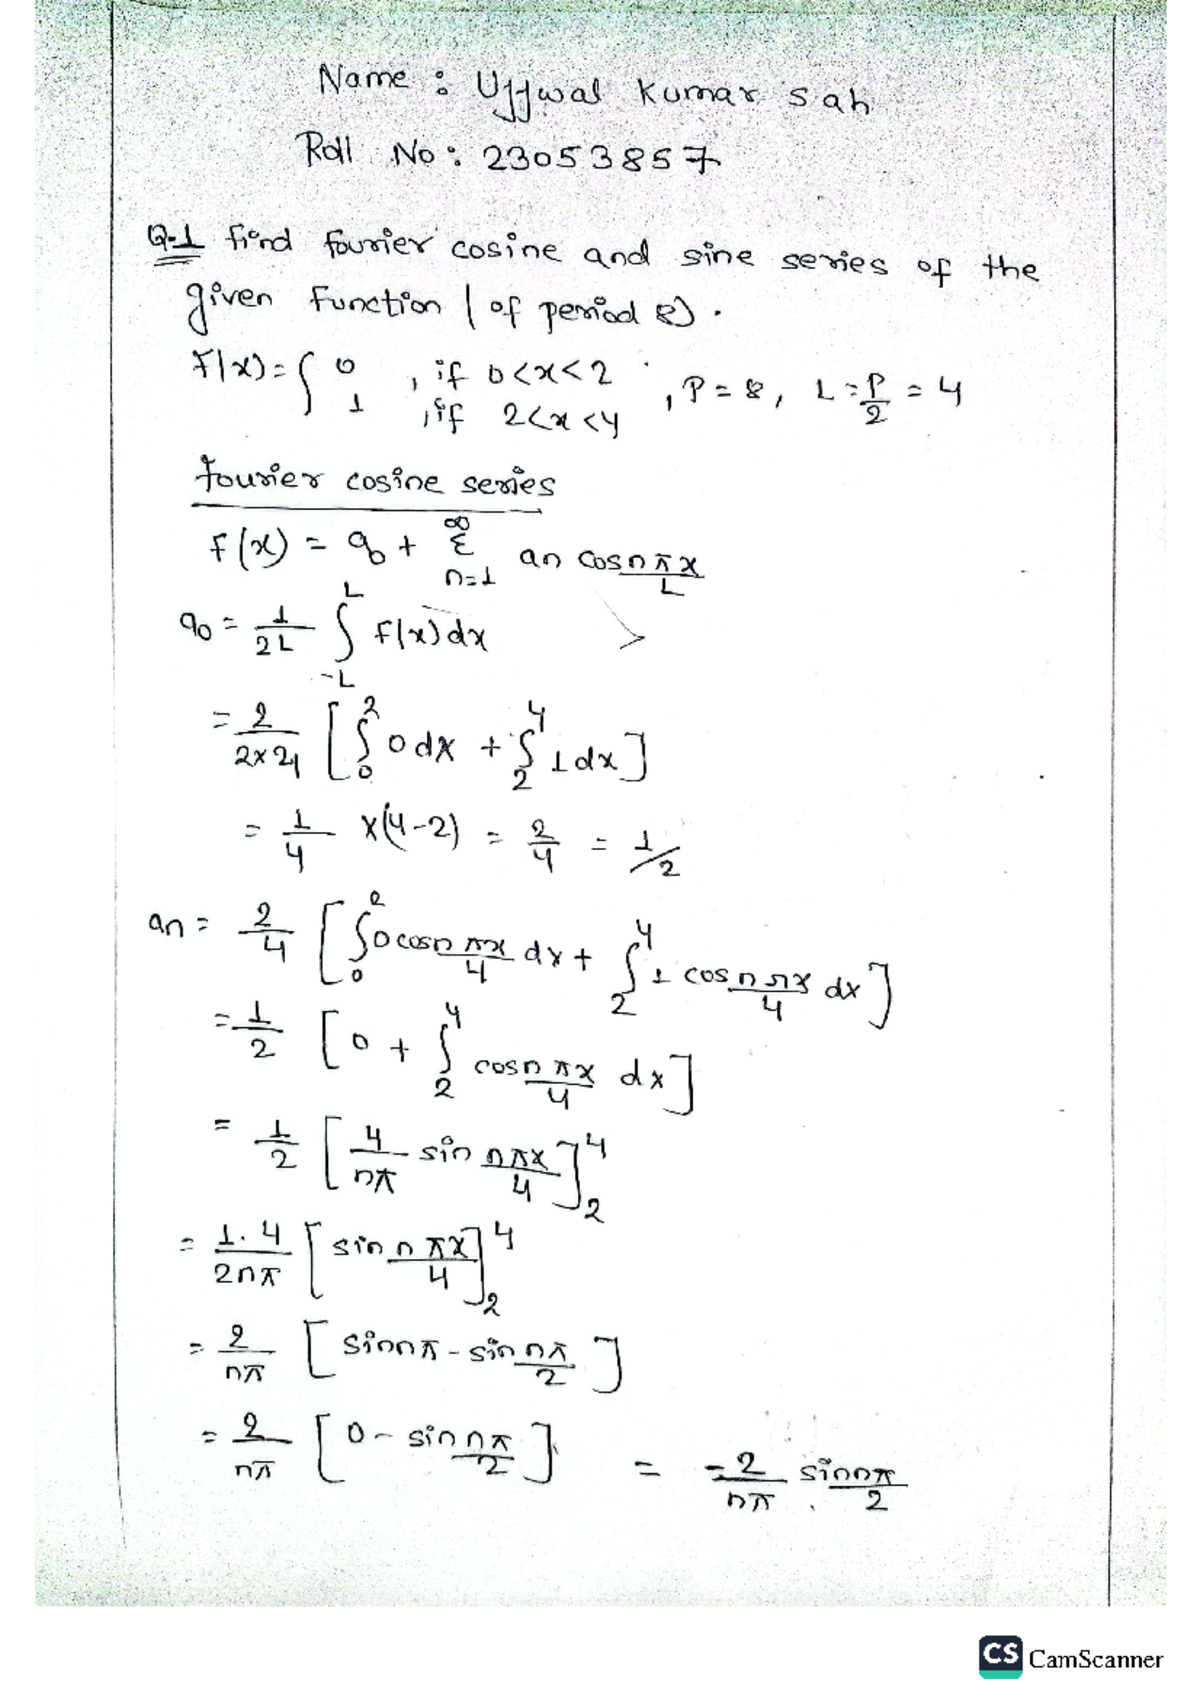 Name : Ujjwal Kumar Sah
Roll No : 23053857
Q-1 Find fourier cosine and sine series of the
given Function ( of period 8).
F(x) = { 0 , if 0<x<2
1 , if 2<x<4 , P = 8, L = P/2 = 4
Fourier cosine series
F(x) = a0 + ∞Σn=1 an cos nπx/L
a0 = 1/2L ∫-L^L F(x) dx
= 2/2×4 [∫0^2 0 dx + ∫2^4 1 dx]
= 1/4 x(4-2) = 2/4 = 1/2
an = 2/4 [∫0^2 0 cos nπx/4 dx + ∫2^4 1 cos nπx/4 dx]
= 1/2 [0 + ∫2^4 cos nπx/4 dx]
= 1/2 [4/nπ sin nπx/4]2^4
= 1.4/2nπ [sin nπx/4]2^4
= 2/nπ [sin nπ - sin nπ/2]
= 2/nπ [0 - sin nπ/2] = -2/nπ sin nπ/2
CS CamScanner